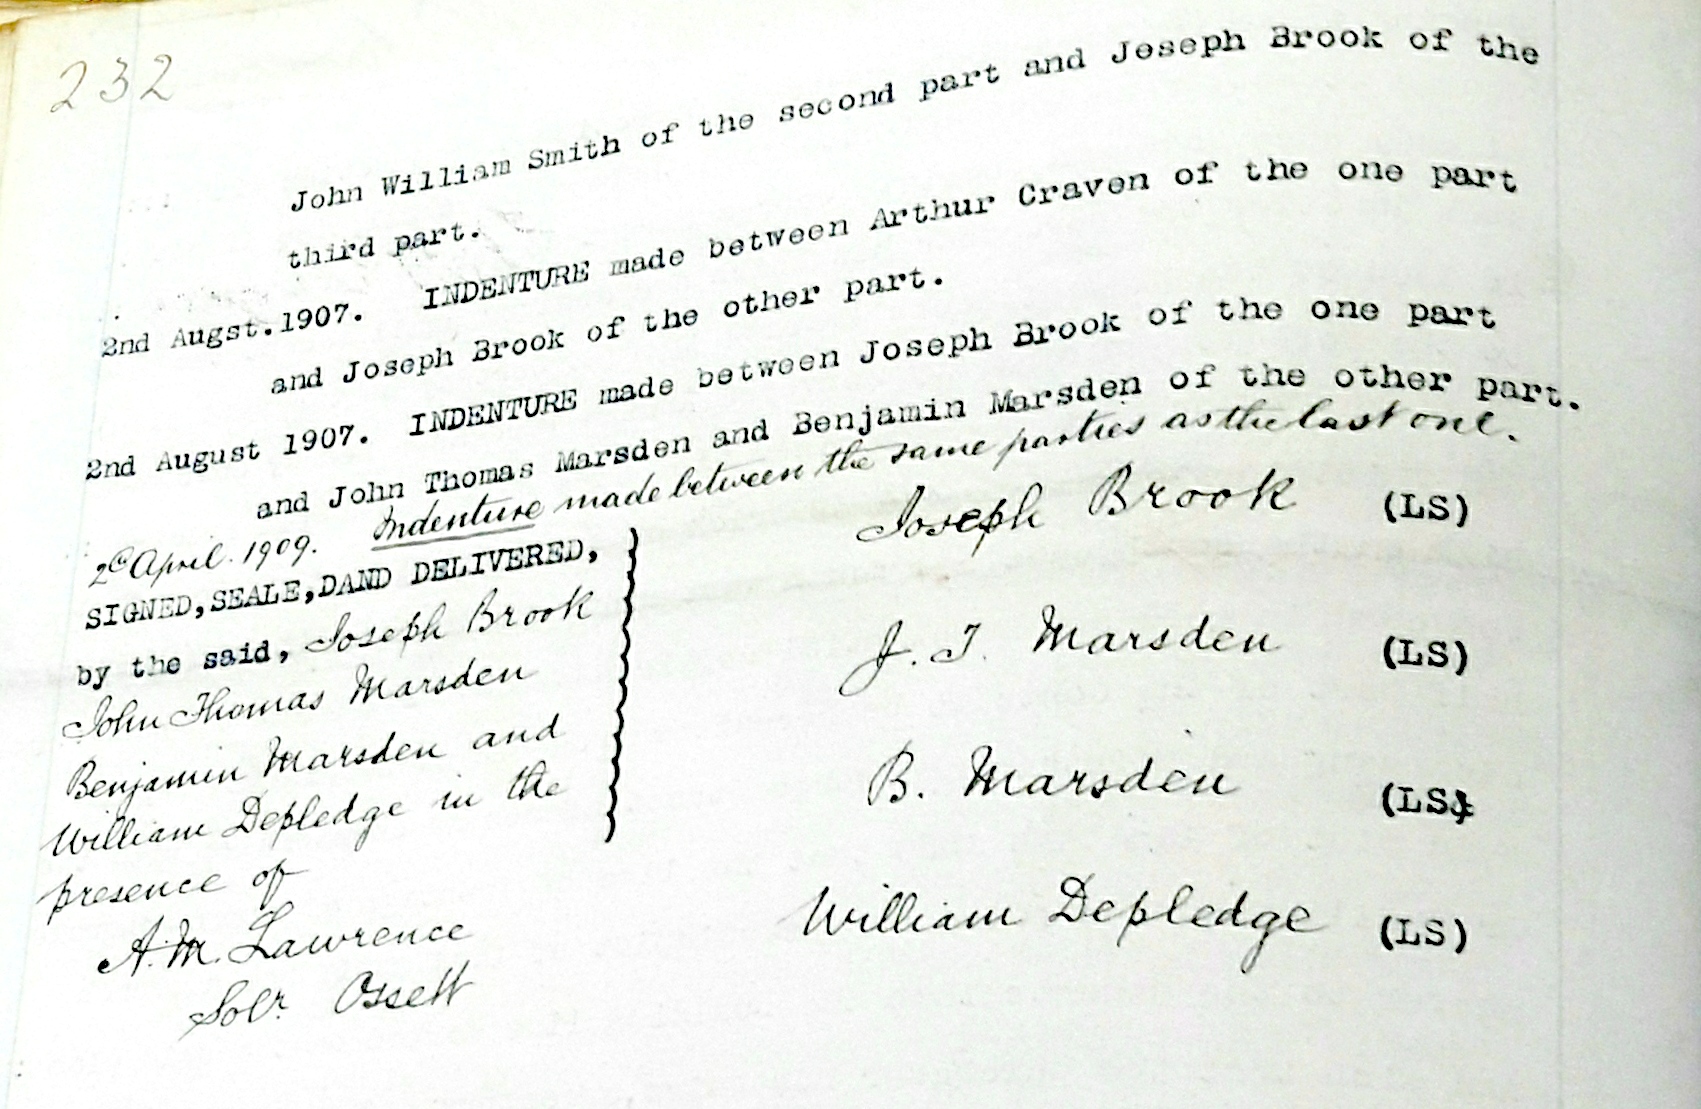 232
John William Smith of the second part and Joseph Brook of the
third part.
2nd Augst.1907. INDENTURE made between Arthur Craven of the one part
and Joseph Brook of the other part.
2nd August 1907. INDENTURE made between Joseph Brook of the one part
and John Thomas Marsden and Benjamin Marsden of the other part.
2d April. 1909. Indenture made between the same parties as the last one.
SIGNED,SEALE,DAND DELIVERED,
by the said, Joseph Brook
John Thomas Marsden
Benjamin Marsden and
William Depledge in the
presence of
A.M. Lawrence
Solr. Ossett
Joseph Brook (LS)
J. T. Marsden (LS)
B. Marsden (LS)
William Depledge (LS)